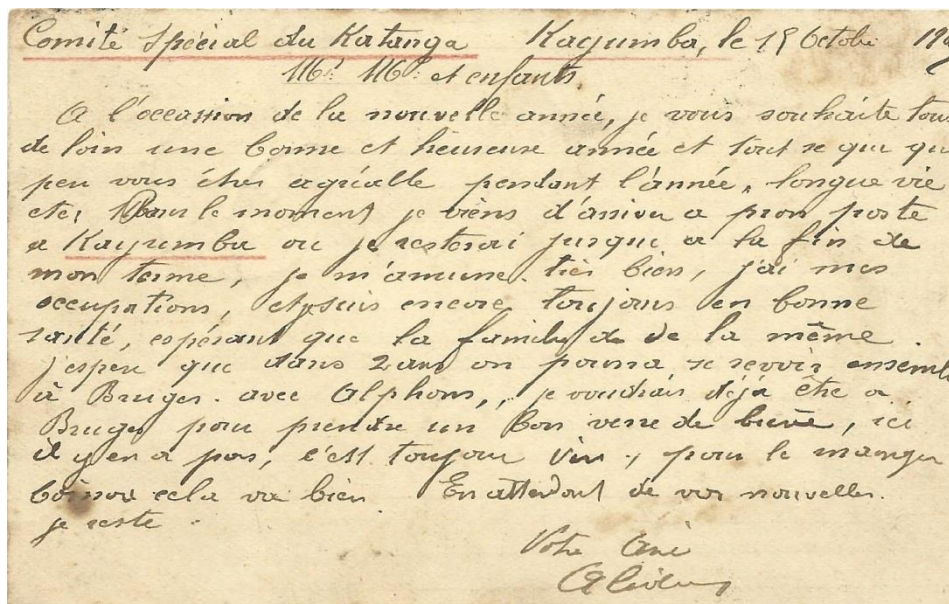 Comité Spécial du Katanga Kayumba, le 15 Octobr 19
Mr. Me. et enfants.
A l'occassion de la nouvelle année, je vous souhaite tous
de loin une bonne et heureuse année et tout se qui
peu vous être agréable pendant l'année, longue vie
etc, le moment je viens d'arriver a mon poste
a Kayumba ou je resterai jusque a la fin de
mon terme, je m'amuse très bien, j'ai mes
occupations, et suis encore toujours en bonne
santé, espérant que la famille de même.
j'esper que dans 2 ans on pourra se revoir ensembl
à Bruges. avec Alphons, je voudrais déjà être a
Bruges pour prendre un bon verre de bière, ici
il y en a pas, c'est toujour vin, pour le manger
cela va bien En attendant de vos nouvelles.
je reste.
Votre Ami